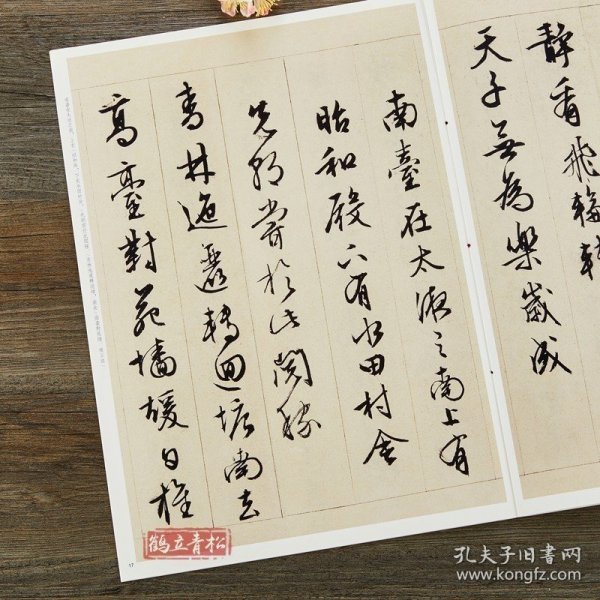 靜看飛輪轉
天子無為樂歲成
南臺在太液之南上有
昭和殿下有水田村舍
先朝嘗於此閱稼
青林迤邐轉迴塘南去
高臺對苑墻暖日旌
17
鹤立青松
孔夫子旧书网
www.kongfz.com